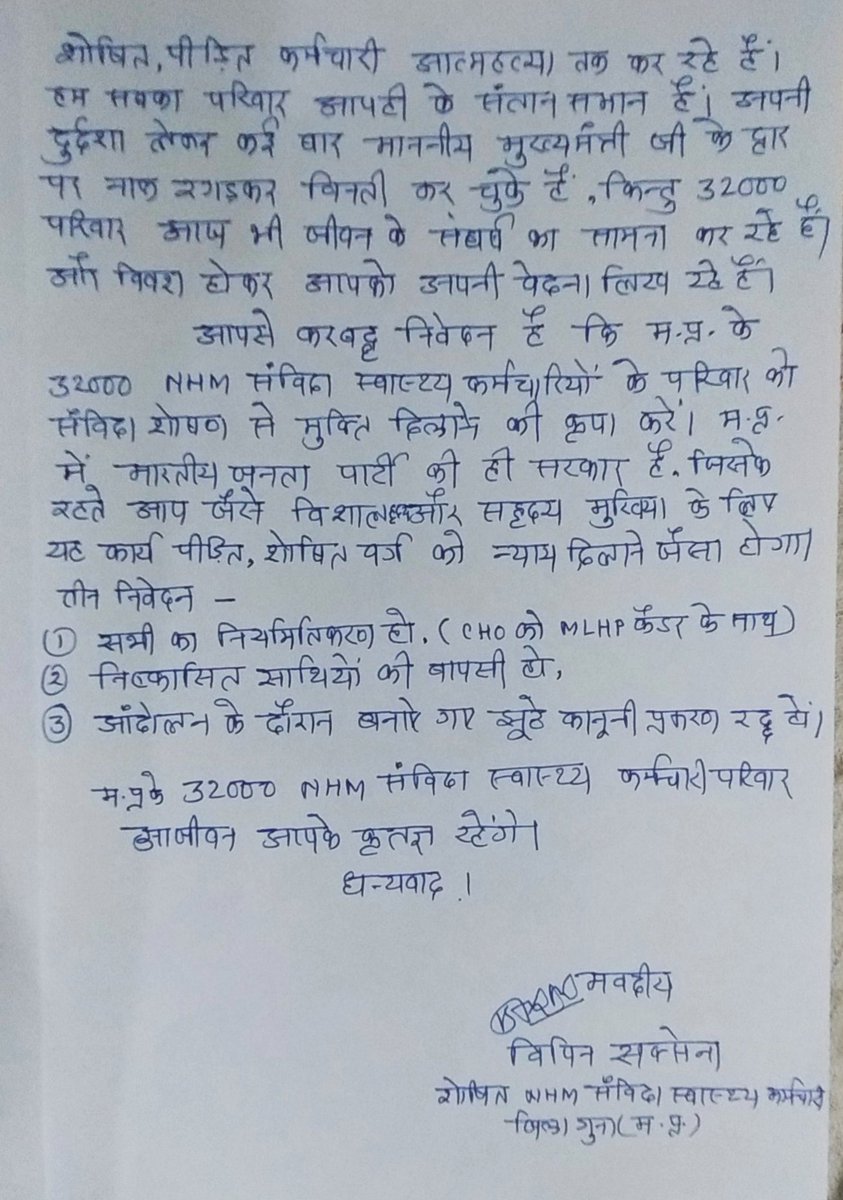 शोषित, पीड़ित कर्मचारी आत्महत्या तक कर रहे हैं।
हम सबका परिवार आपही के संतान समान हैं। अपनी
दुर्दशा लेकर कई बार माननीय मुख्यमंत्री जी के द्वार
पर नाक रगड़कर विनती कर चुके हैं, किन्तु 32000
परिवार आज भी जीवन के संघर्ष का सामना कर रहे हैं।
और विवश होकर आपको अपनी वेदना लिख रहे हैं।
आपसे करबद्ध निवेदन है कि म.प्र. के
32000 NHM संविदा स्वास्थ्य कर्मचारियों के परिवार को
संविदा शोषण से मुक्ति दिलाने की कृपा करें। म.प्र.
में भारतीय जनता पार्टी की ही सरकार है, जिसके
रहते आप जैसे विशाल और सहृदय मुखिया के लिए
यह कार्य पीड़ित, शोषित वर्ग को न्याय दिलाने जैसा होगा।
तीन निवेदन –
① सभी का नियमितिकरण हो, (CHO को MLHP कैडर के साथ)
② निष्कासित साथियों की वापसी हो,
③ आंदोलन के दौरान बनाए गए झूठे कानूनी प्रकरण रद्द हों।
म.प्र के 32000 NHM संविदा स्वास्थ्य कर्मचारी परिवार
आजीवन आपके कृतज्ञ रहेंगे।
धन्यवाद ।
भवदीय
विपिन सक्सेना
शोषित NHM संविदा स्वास्थ्य कर्मचारी
जिला गुना (म.प्र.)